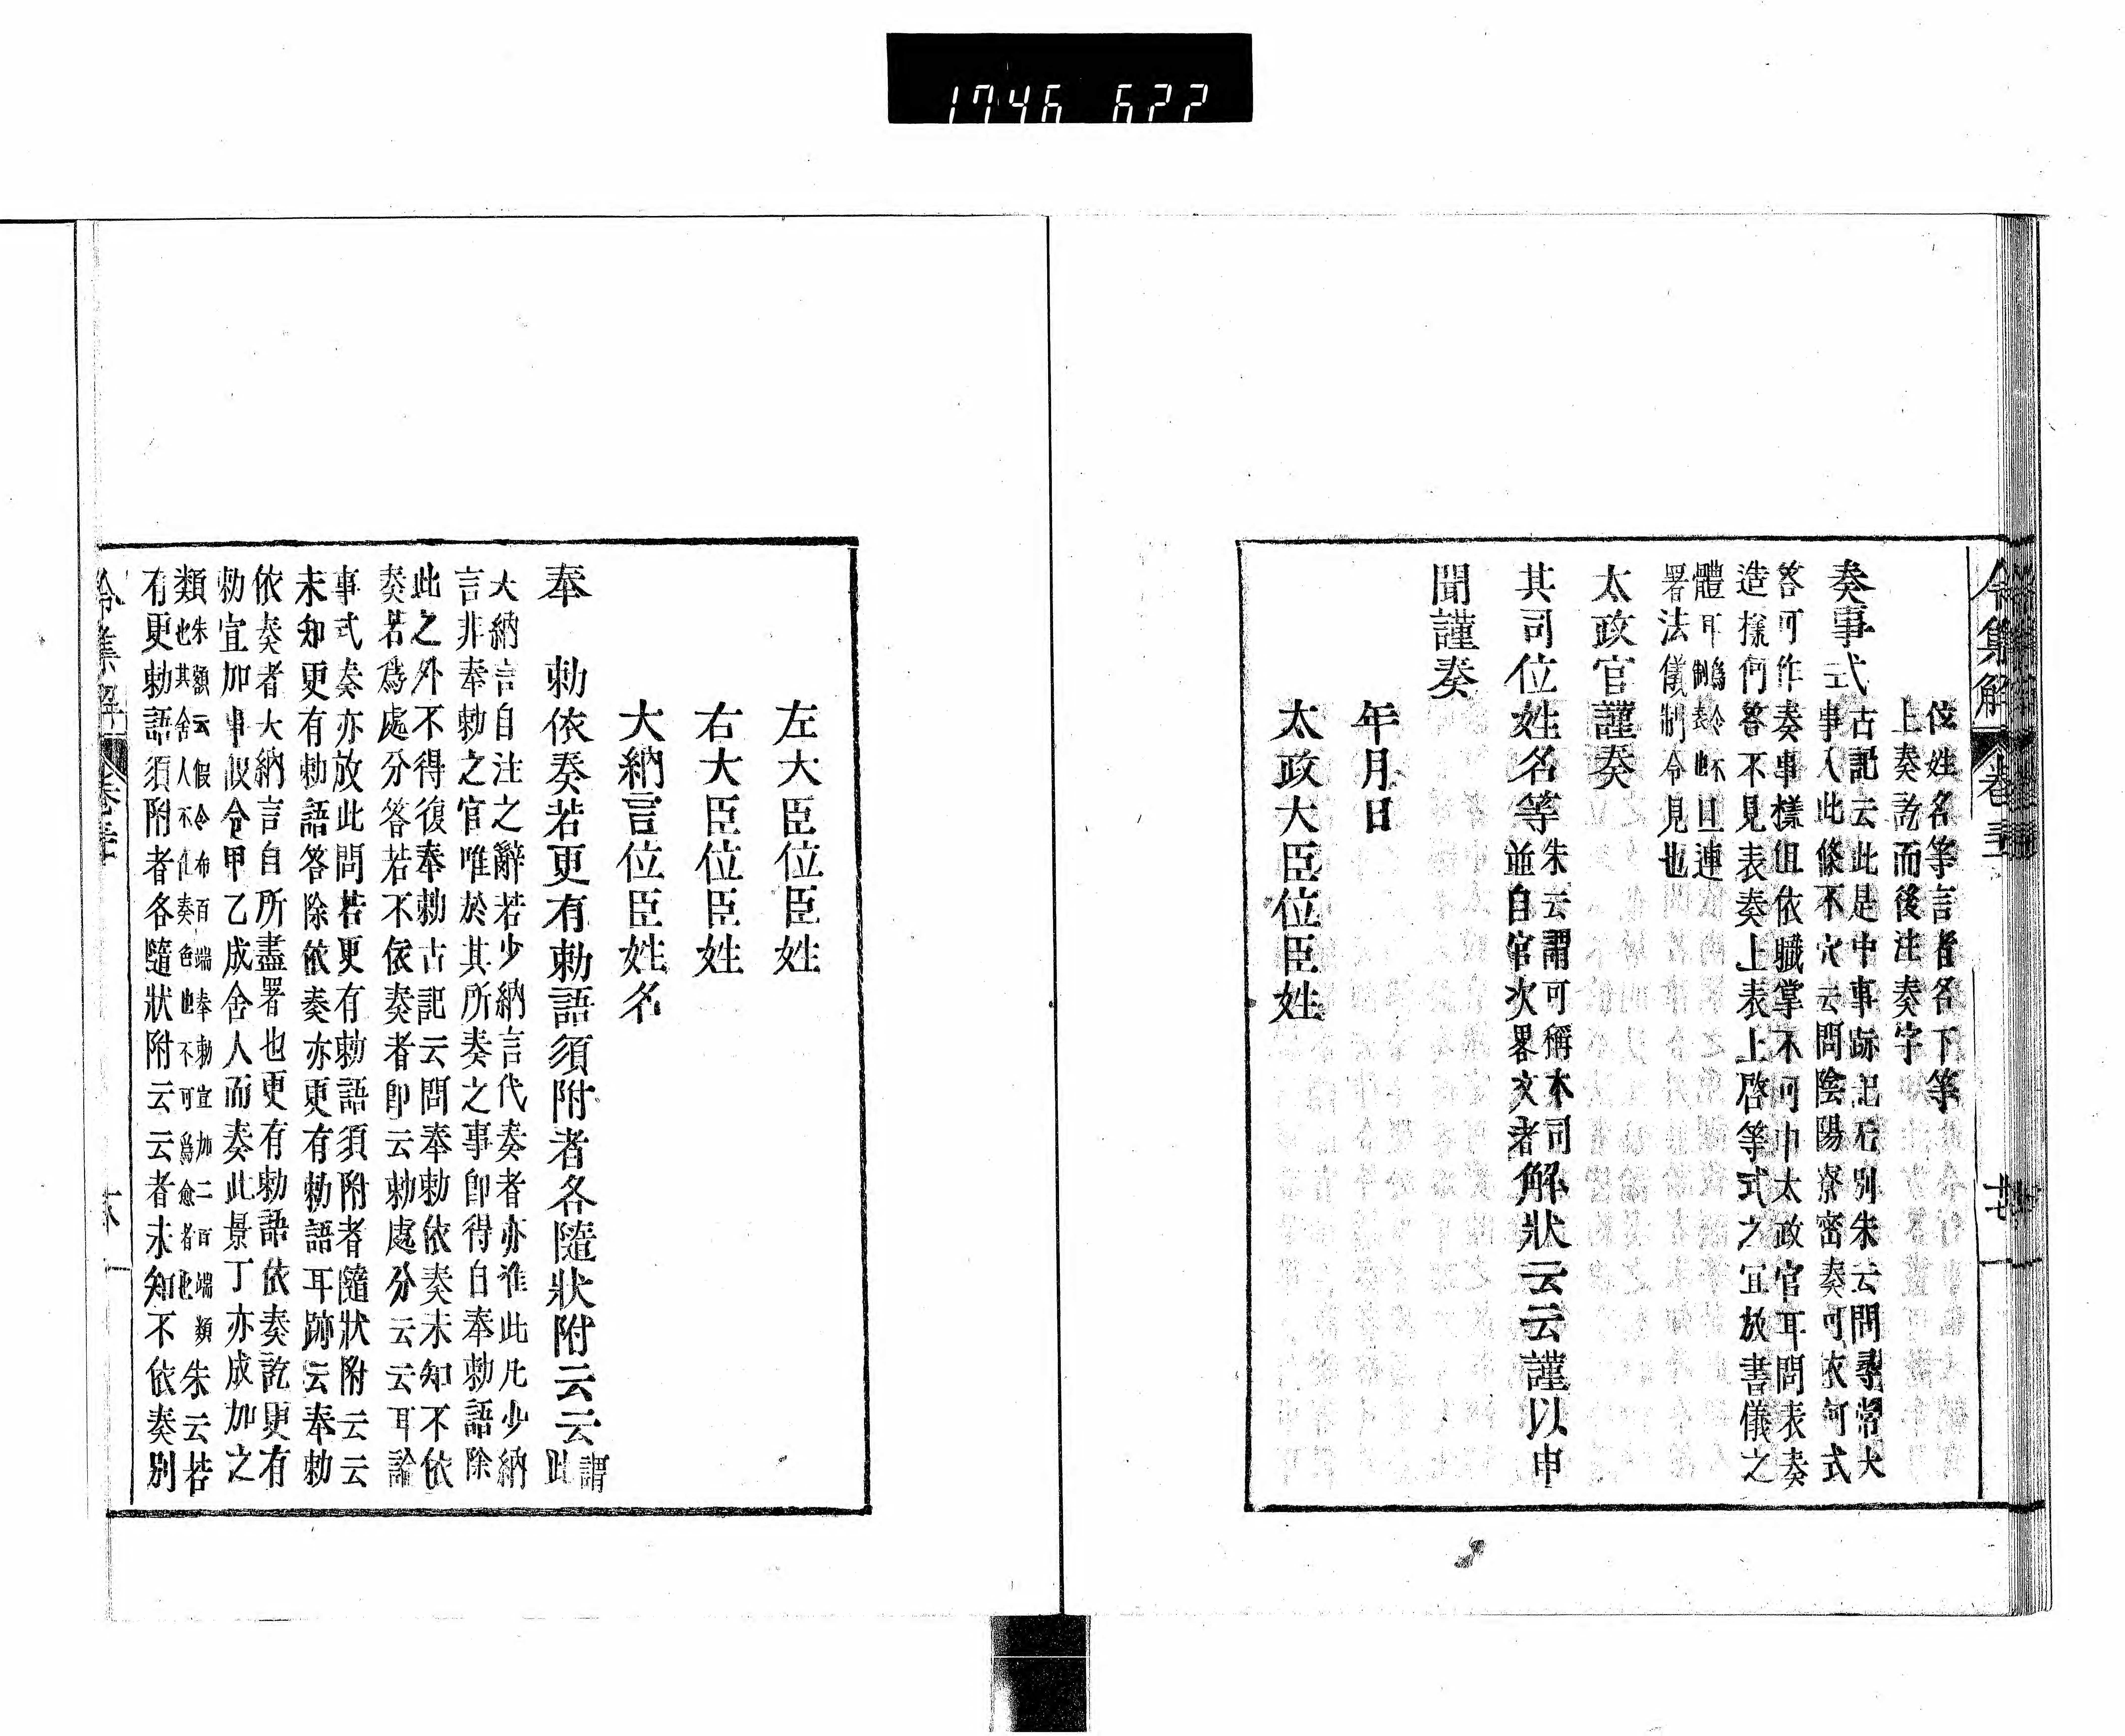 1746 622
位姓名等言者各下等
上奏訖而後注奏字
奏事式
古記云此是中事跡記石別朱云問尋常大
事入此條不穴云問陰陽寮密奏可依何式
答可作奏事樣但依職掌不可申太政官耳問表奏
造樣何答不見表奏上表上啓等式之宜放書儀之
體耳
且連
署法儀制令見也
太政官謹奏
其司位姓名等
朱云謂可稱本司
並自官次畧文者
解狀云云謹以申
聞謹奏
年月日
太政大臣位臣姓
左大臣位臣姓
右大臣位臣姓
大納言位臣姓名
奉 勅依奏若更有勅語須附者各隨狀附云云
謂
此
大納言自注之辭若少納言代奏者亦准此凡少納
言非奉勅之官唯於其所奏之事卽得自奉勅語除
此之外不得復奉勅古記云問奉勅依奏未知不依
奏若爲處分答若不依奏者卽云勅處分云云耳論
事式奏亦放此問若更有勅語須附者隨狀附云云
未知更有勅語答除依奏亦更有勅語耳跡云奉勅
依奏者大納言自所盡署也更有勅語依奏訖更有
勅宜加事假令甲乙成舍人而奏此景丁亦成加之
類
朱額云假令布百端奉勅宣加二百端類
也其舍人不佀奏色也不可爲愈者也
朱云若
有更勅語須附者各隨狀附云云者未知不依奏別
令集解